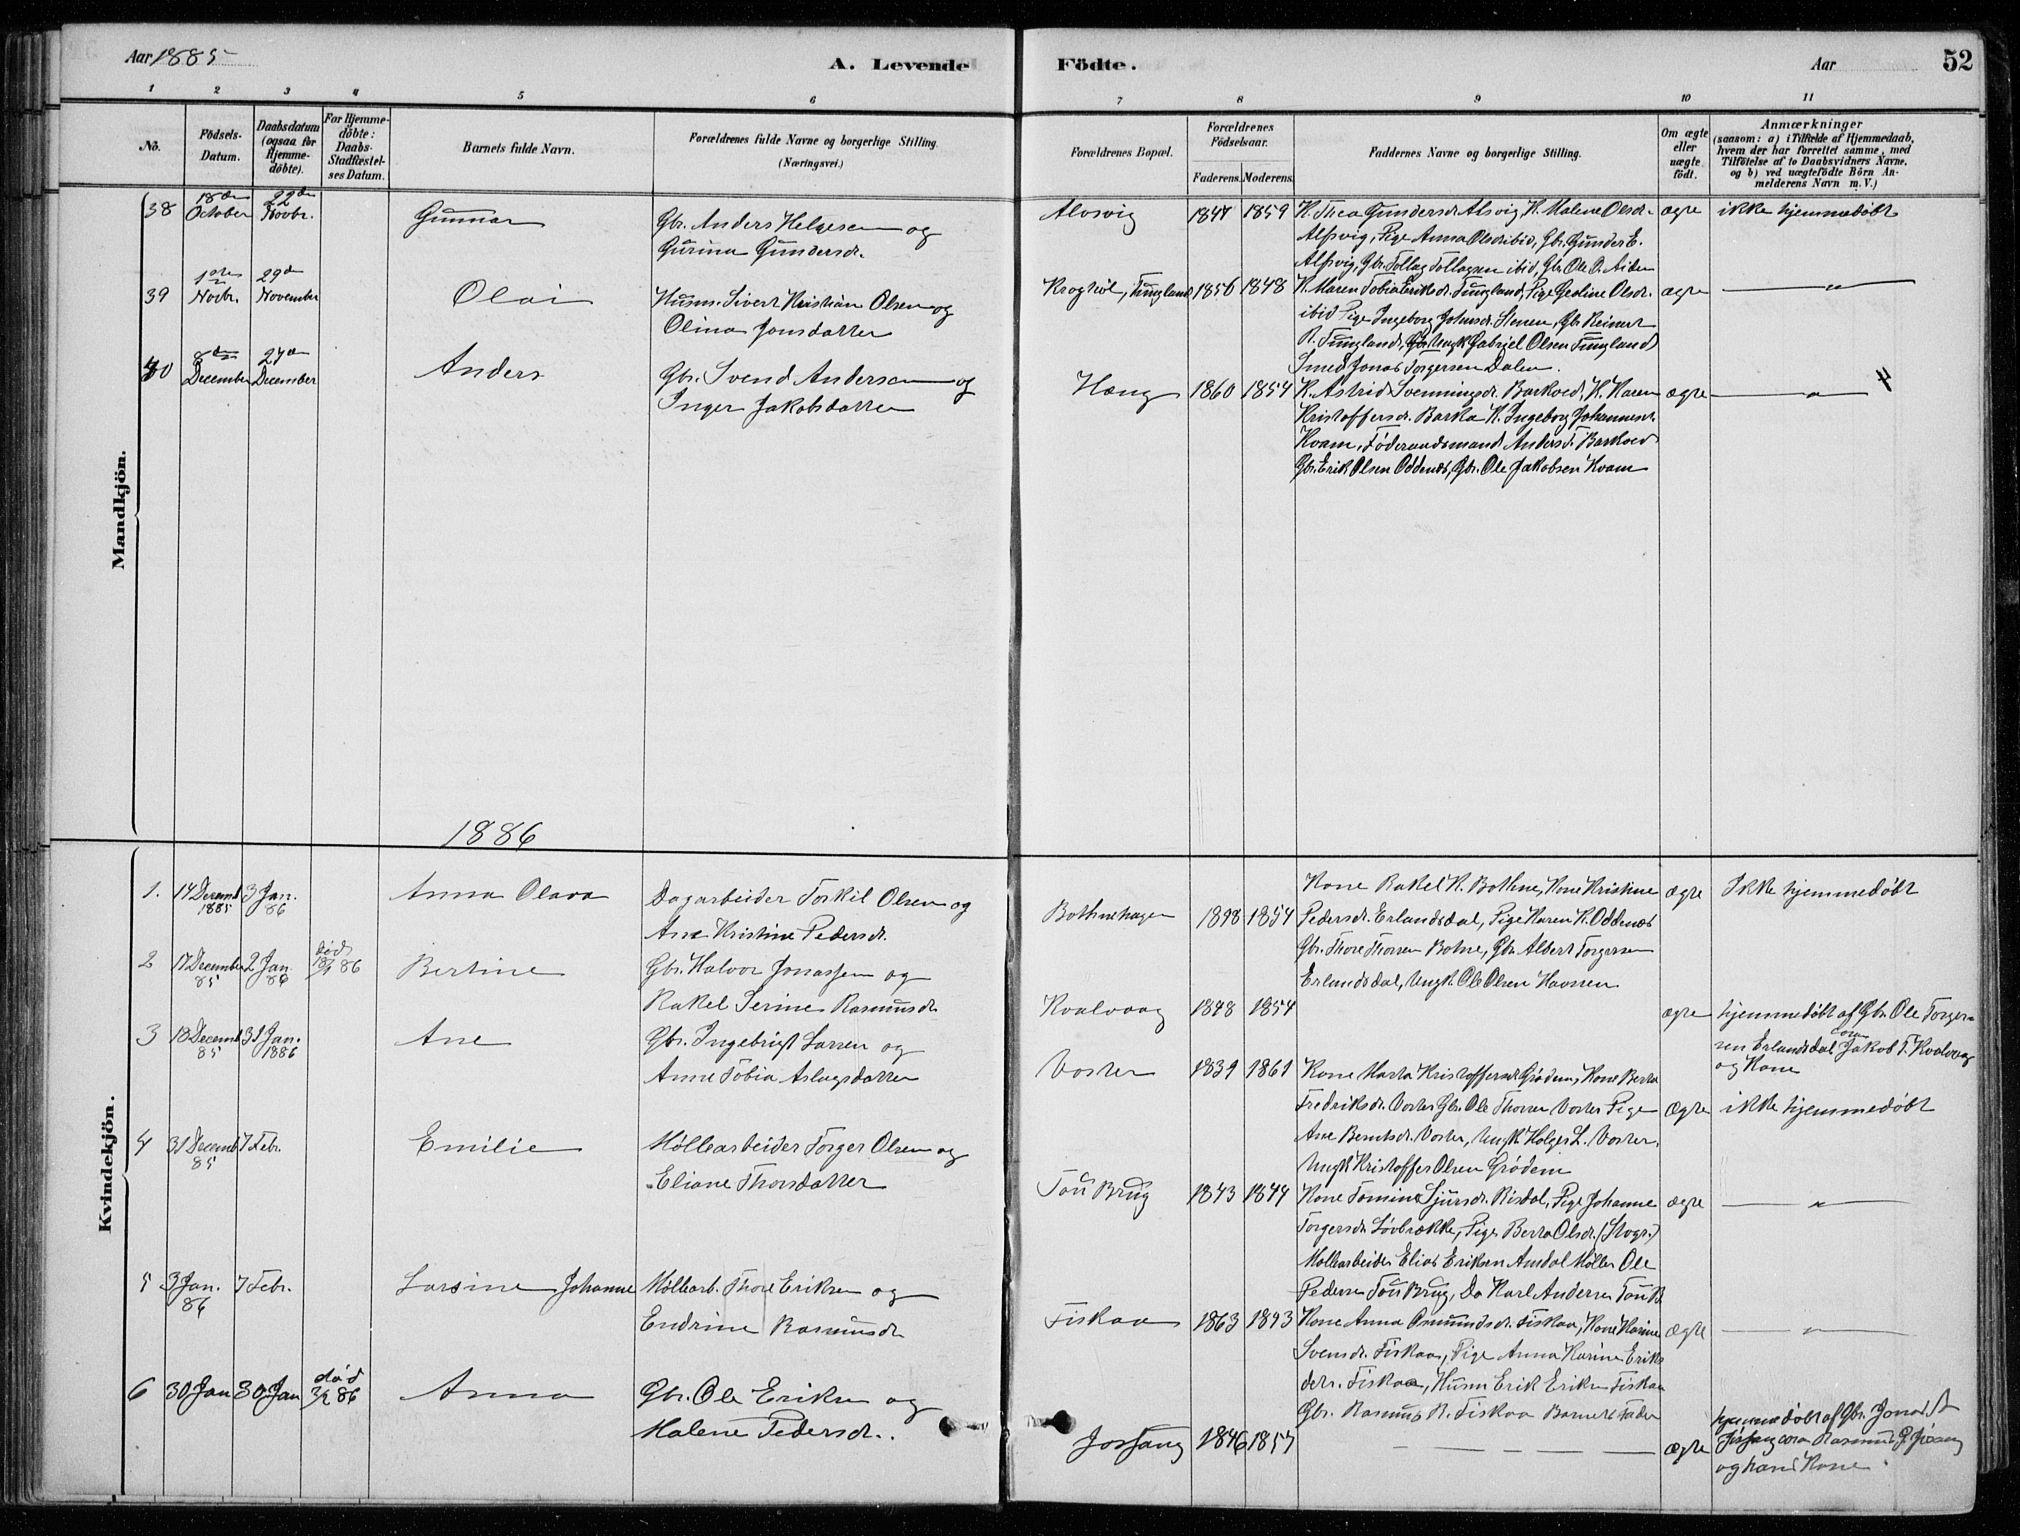 Aar 1885
A. Levende
Födte.
Aar
52
1 2 3 4 5 6 7 8 9 10 11
No.
Födsels-
Datum.
Daabsdatum
(ogsaa for
Hjemme-
döbte).
For Hjemme-
döbte:
Daabs-
Stadfæstel-
ses Datum.
Barnets fulde Navn.
Forældrenes fulde Navne og borgerlige Stilling.
(Næringsvei.)
Forældrenes Bopæl.
Forældrenes
Födselsaar.
Faderens. Moderens.
Faddernes Navne og borgerlige Stilling.
Om ægte
eller
uægte
födt.
Anmærkninger
(saasom: a) i Tilfælde af Hjemmedaab,
hvem der har forrettet samme, med
Tilföielse af to Daabsvidners Navne,
og b) ved uægtefödte Börn An-
melderens Navn m. V.)
Mandkjön.
38
18de
October
22de
Novbr.
Gunnar
Gbr. Anders Helgesen og
Gurina Gundersdr.
Alsvig
1847 1859
K. Thea Gundersdr Alsvig, K. Malene Olsdr.
Alsvig, Pige Anna Olsdr ibid, Gbr. Gunder E.
Alsvig, Gbr. Tollag Tollagsen ibid, Gbr. Ole O.
ægte
ikke hjemmedøbt
39
1ste
Novbr.
29de
November
Olai
Husm. Sivert Kristian Olsen og
Olina Jonsdatter
Tungland
1856 1848
K. Maren Tobia Eriksdr. Tungland, Pige Gesline Olsdr.
ibid Pige Ingeborg Johnsdr. Stenen, Gbr Reinert
R. Tungland, Ungk Gabriel Olsen Tungland
Smed Jonas Torgersen Dalen.
ægte
— " —
40
8de
December
27de
December
Anders
Gbr. Svend Andersen og
Inger Jakobsdatter
Hæng
1860 1854
K. Astrid Svenningsdr. Barkved, K. Karen
Kristoffersdr. Barka K. Ingeborg Johannesdr.
Kvam, Föderaadsmand Anders Barkved
Gbr. Erik Olsen Oddenæs, Gbr. Ole Jakobsen Kvam
ægte
— " —
1886
Kvindekjön.
1.
14 Decemb
1885
3 Jan.
86
Anna Olava
Dagarbeider Torkil Olsen og
Ane Kristine Pedersdr.
Bothnehagen
1848 1854
Kone Rakel K. Bothne, Kone Kristine
Pedersdr. Erlandsdal, Pige Karen K. Oddenæs
Gbr. Thore Thorsen Botne, Gbr. Albert Torgersen
Erlandsdal, Ungk. Ole Olsen
ægte
Ikke hjemmedøbt
2
17 December
85
2 Jan.
86
død
86
Bertine
Gbr. Halvor Jonassen og
Rakel Serine Rasmusdr
Kvalvaag
1848 1854
ægte
hjemmedøbt af Gbr. Ole Torger-
sen Erlandsdal Jakob T. Kvalvaag
og Kone
3
18 Decemb
85
31 Jan.
1886
Ane
Gbr. Ingebrigt Larsen og
Anne Tobia Aslagsdatter
Voster
1839 1861
Kone Marta Kristoffersdr Grödem, Kone Berta
Fredriksdr. Voster Gbr. Ole Thorsen Voster Pige
Ane Berntsdr. Voster, Ungk. Holger L. Voster.
Ungk Kristoffer Olsen Grödem
ægte
ikke hjemmedøbt
4
31 Decemb
85
7 Febr.
Emilie
Møllearbeider Torger Olsen og
Eliane Thorsdatter
Tou Brug
1843 1844
Kone Tomine Sjursdr. Risdal, Pige Johanne
Torgersdr. Løvbrække, Pige Berta Olsdr.
Møllearbeider Elias Eriksen Amdal Møller Ole
Pedersen Tou Brug, Do Karl Andersen Tou B
ægte
— " —
5
3 Jan.
86
7 Febr.
Larsine Johanne
Møllearb. Thore Eriksen og
Endrine Rasmusdr
Fiskaa
1863 1843
Kone Anna Osmundsdr. Fiskaa, Kone Karine
Svensdr. Fiskaa, Pige Anna Karine Eriks
datr. Fiskaa, Husm Erik Eriksen Fiskaa
Gbr. Rasmus R. Fiskaa Barnets Fader
ægte
— " —
6
30 Jan
30 Jan
død
86
Anna
Gbr. Ole Eriksen og
Malene Pedersdr.
Jøssang
1846 1857
— — — —
ægte
hjemmedøbt af Gbr. Jonas
Jøssang Rasmus Jøssang
og hans Kone